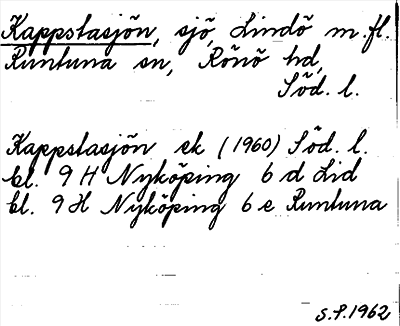 Kappstasjön, sjö, Lindö m.fl.
Runtuna sn, Rönö hd,
Söd. l.
Kappstasjön ek (1960) Söd. l.
bl. 9 H Nyköping 6 d Lid
bl. 9 H Nyköping 6 e Runtuna
S.P. 1962